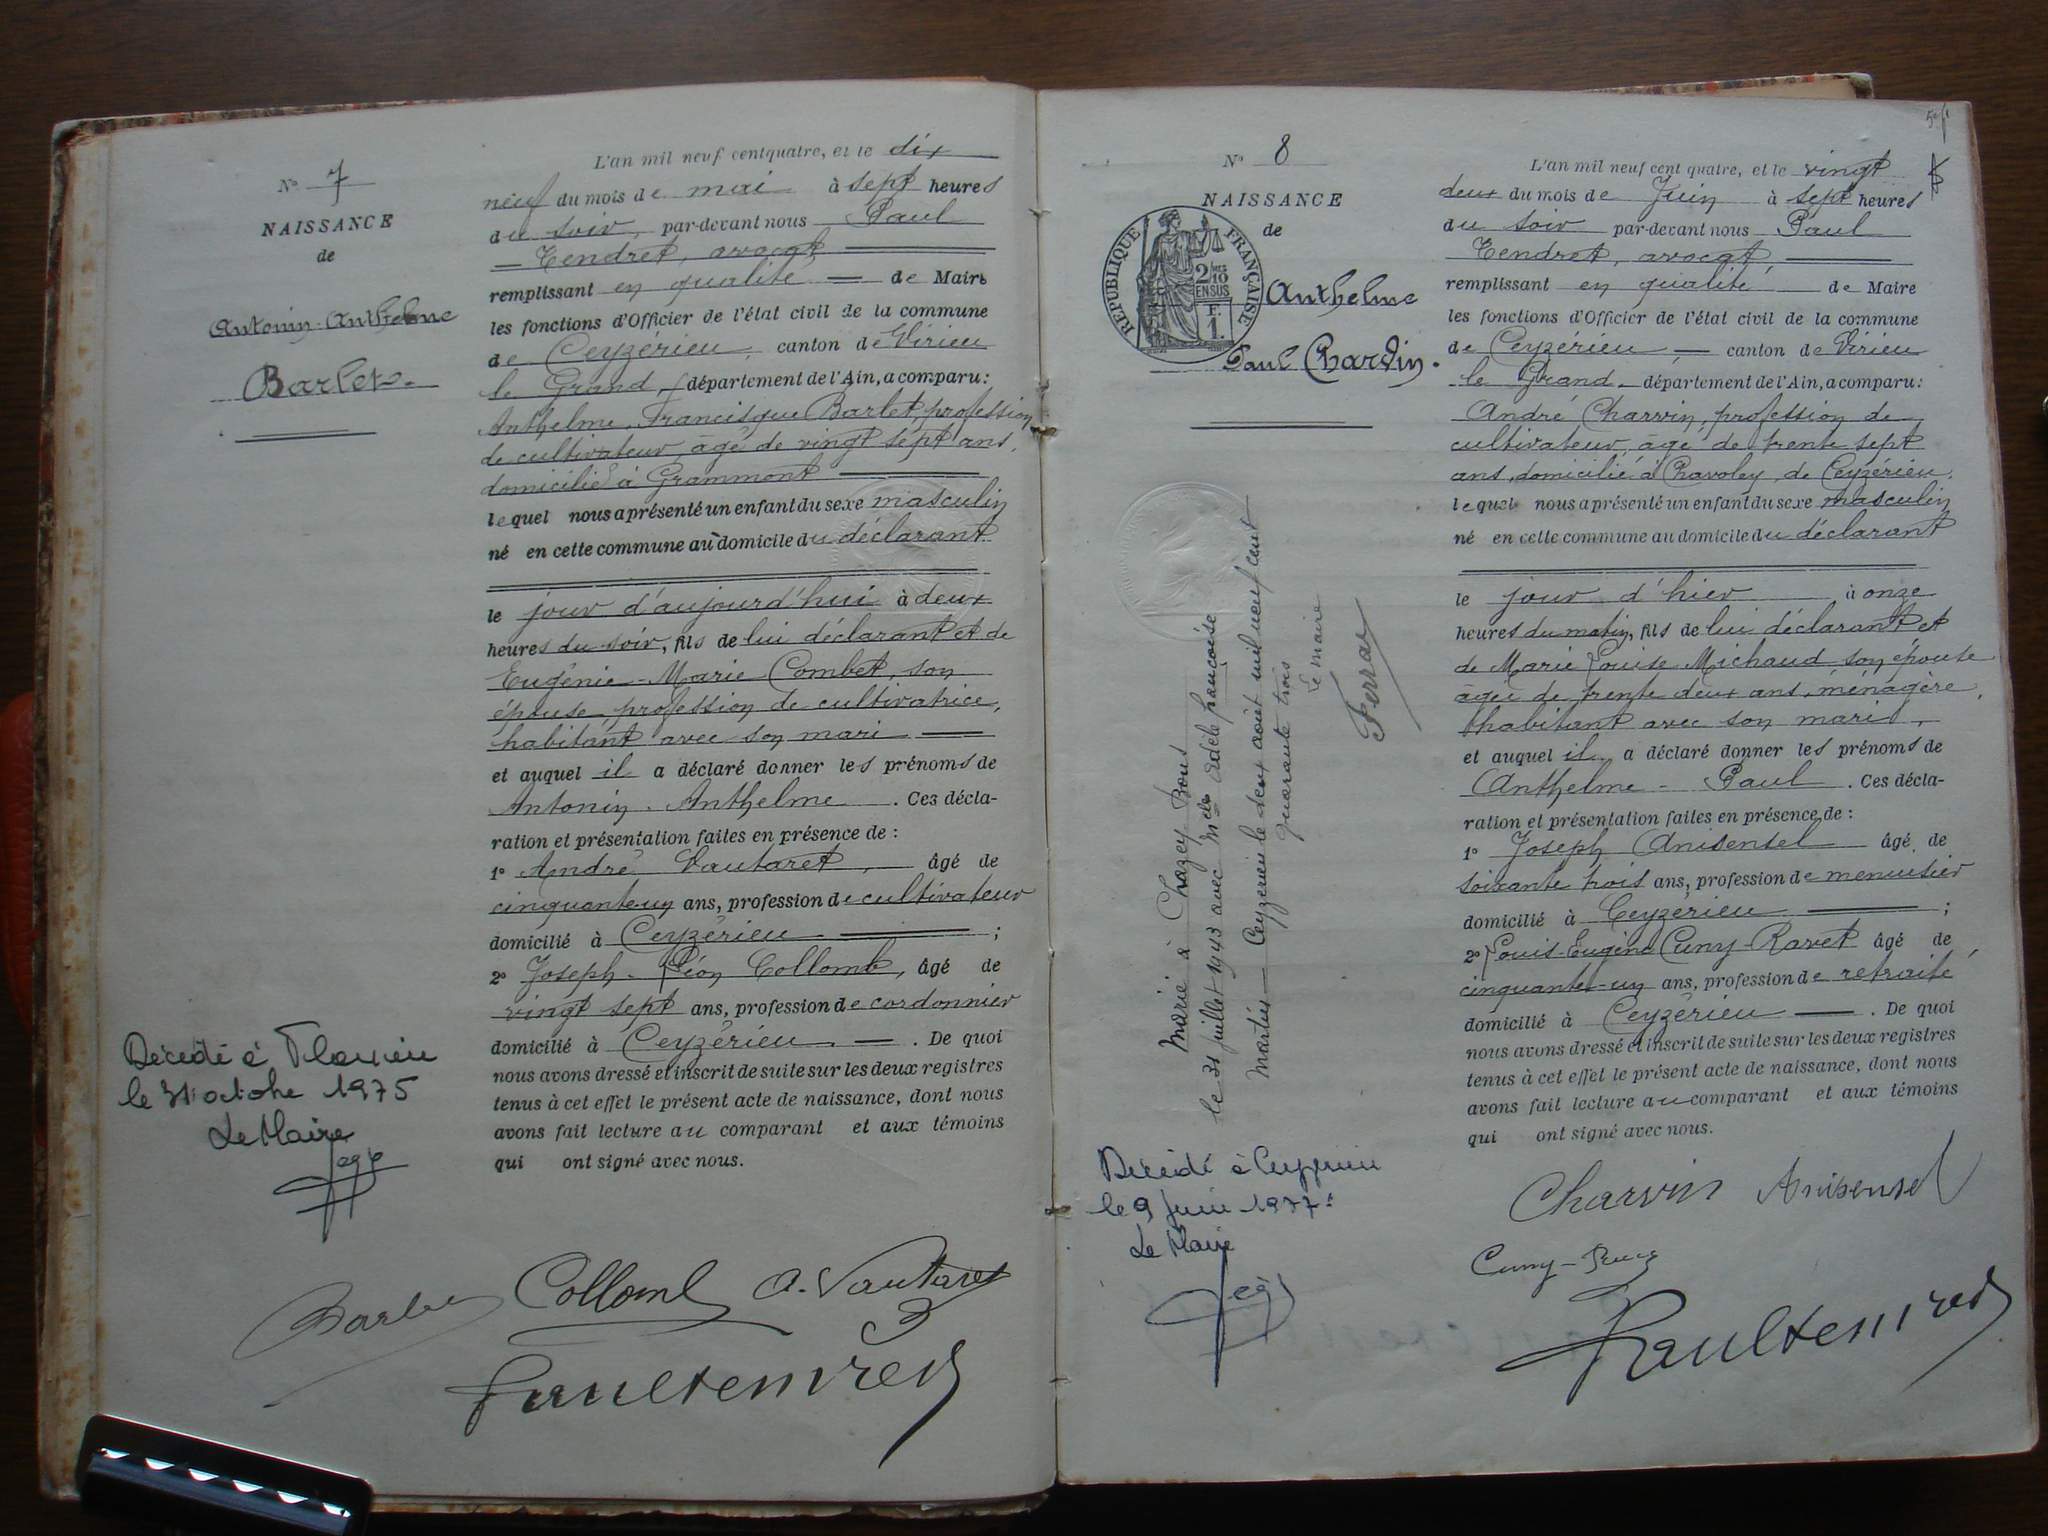 N° 7
NAISSANCE
de
Antonin-Anthelme
Barlet.
L'an mil neuf cent quatre, et le dix
neuf du mois de mai à sept heures
du soir, par-devant nous Paul
Tendret, avocat
remplissant en qualité de Maire
les fonctions d'Officier de l'état civil de la commune
de Ceyzérieu, canton de Virieu
le Grand, département de l'Ain, a comparu:
Anthelme Francisque Barlet, profession
de cultivateur, âgé de vingt sept ans,
domicilié à Grammont
lequel nous a présenté un enfant du sexe masculin
né en cette commune au domicile du déclarant
le jour d'aujourd'hui à deux
heures du soir, fils de lui déclarant et de
Eugénie-Marie Combet, son
épouse profession de cultivatrice,
habitant avec son mari
et auquel il a déclaré donner les prénoms de
Antonin. Anthelme. Ces décla-
ration et présentation faites en présence de :
1° André Vautaret, âgé de
cinquante-un ans, profession de cultivateur
domicilié à Ceyzérieu ;
2° Joseph-Léon Collomb, âgé de
vingt sept ans, profession de cordonnier
domicilié à Ceyzérieu. De quoi
nous avons dressé et inscrit de suite sur les deux registres
tenus à cet effet le présent acte de naissance, dont nous
avons fait lecture au comparant et aux témoins
qui ont signé avec nous.
Décédé à Flaxieu
le 31 octobre 1975
Le Maire
Barlet Collomb A. Vautaret
Paul Tendret
N° 8
NAISSANCE
de
RÉPUBLIQUE FRANÇAISE
2/10
EN SUS
F.
1.
Anthelme
Paul Charvin.
L'an mil neuf cent quatre, et le vingt
deux du mois de Juin à sept heures
du soir par-devant nous Paul
Tendret, avocat
remplissant en qualité de Maire
les fonctions d'Officier de l'état civil de la commune
de Ceyzérieu, canton de Virieu
le Grand. département de l'Ain, a comparu:
André Charvin, profession de
cultivateur, âgé de trente sept
ans, domicilié à Chavoley, de Ceyzérieu,
lequel nous a présenté un enfant du sexe masculin
né en cette commune au domicile du déclarant
le jour d'hier à onze
heures du matin, fils de lui déclarant et
de Marie Louise Michaud son épouse
agée de trente deux ans, ménagère,
habitant avec son mari,
et auquel il a déclaré donner les prénoms de
Anthelme-Paul. Ces décla-
ration et présentation faites en présence de :
1° Joseph Anisensel âgé de
soixante trois ans, profession de menuisier
domicilié à Ceyzérieu ;
2° Louis-Eugène Cuny-Ravet âgé de
cinquante-un ans, profession de retraité
domicilié à Ceyzérieu. De quoi
nous avons dressé et inscrit de suite sur les deux registres
tenus à cet effet le présent acte de naissance, dont nous
avons fait lecture au comparant et aux témoins
qui ont signé avec nous.
Marié à Chazey Bons
le 31 juillet 1943 avec Adèle Françoise
Martin — Ceyzérieu le deux août mil neuf cent
quarante trois
Le maire
Ferrar
Décédé à Ceyzérieu
le 9 Juin 1977.
Le Maire
Charvin Anisensel
Paul Tendret